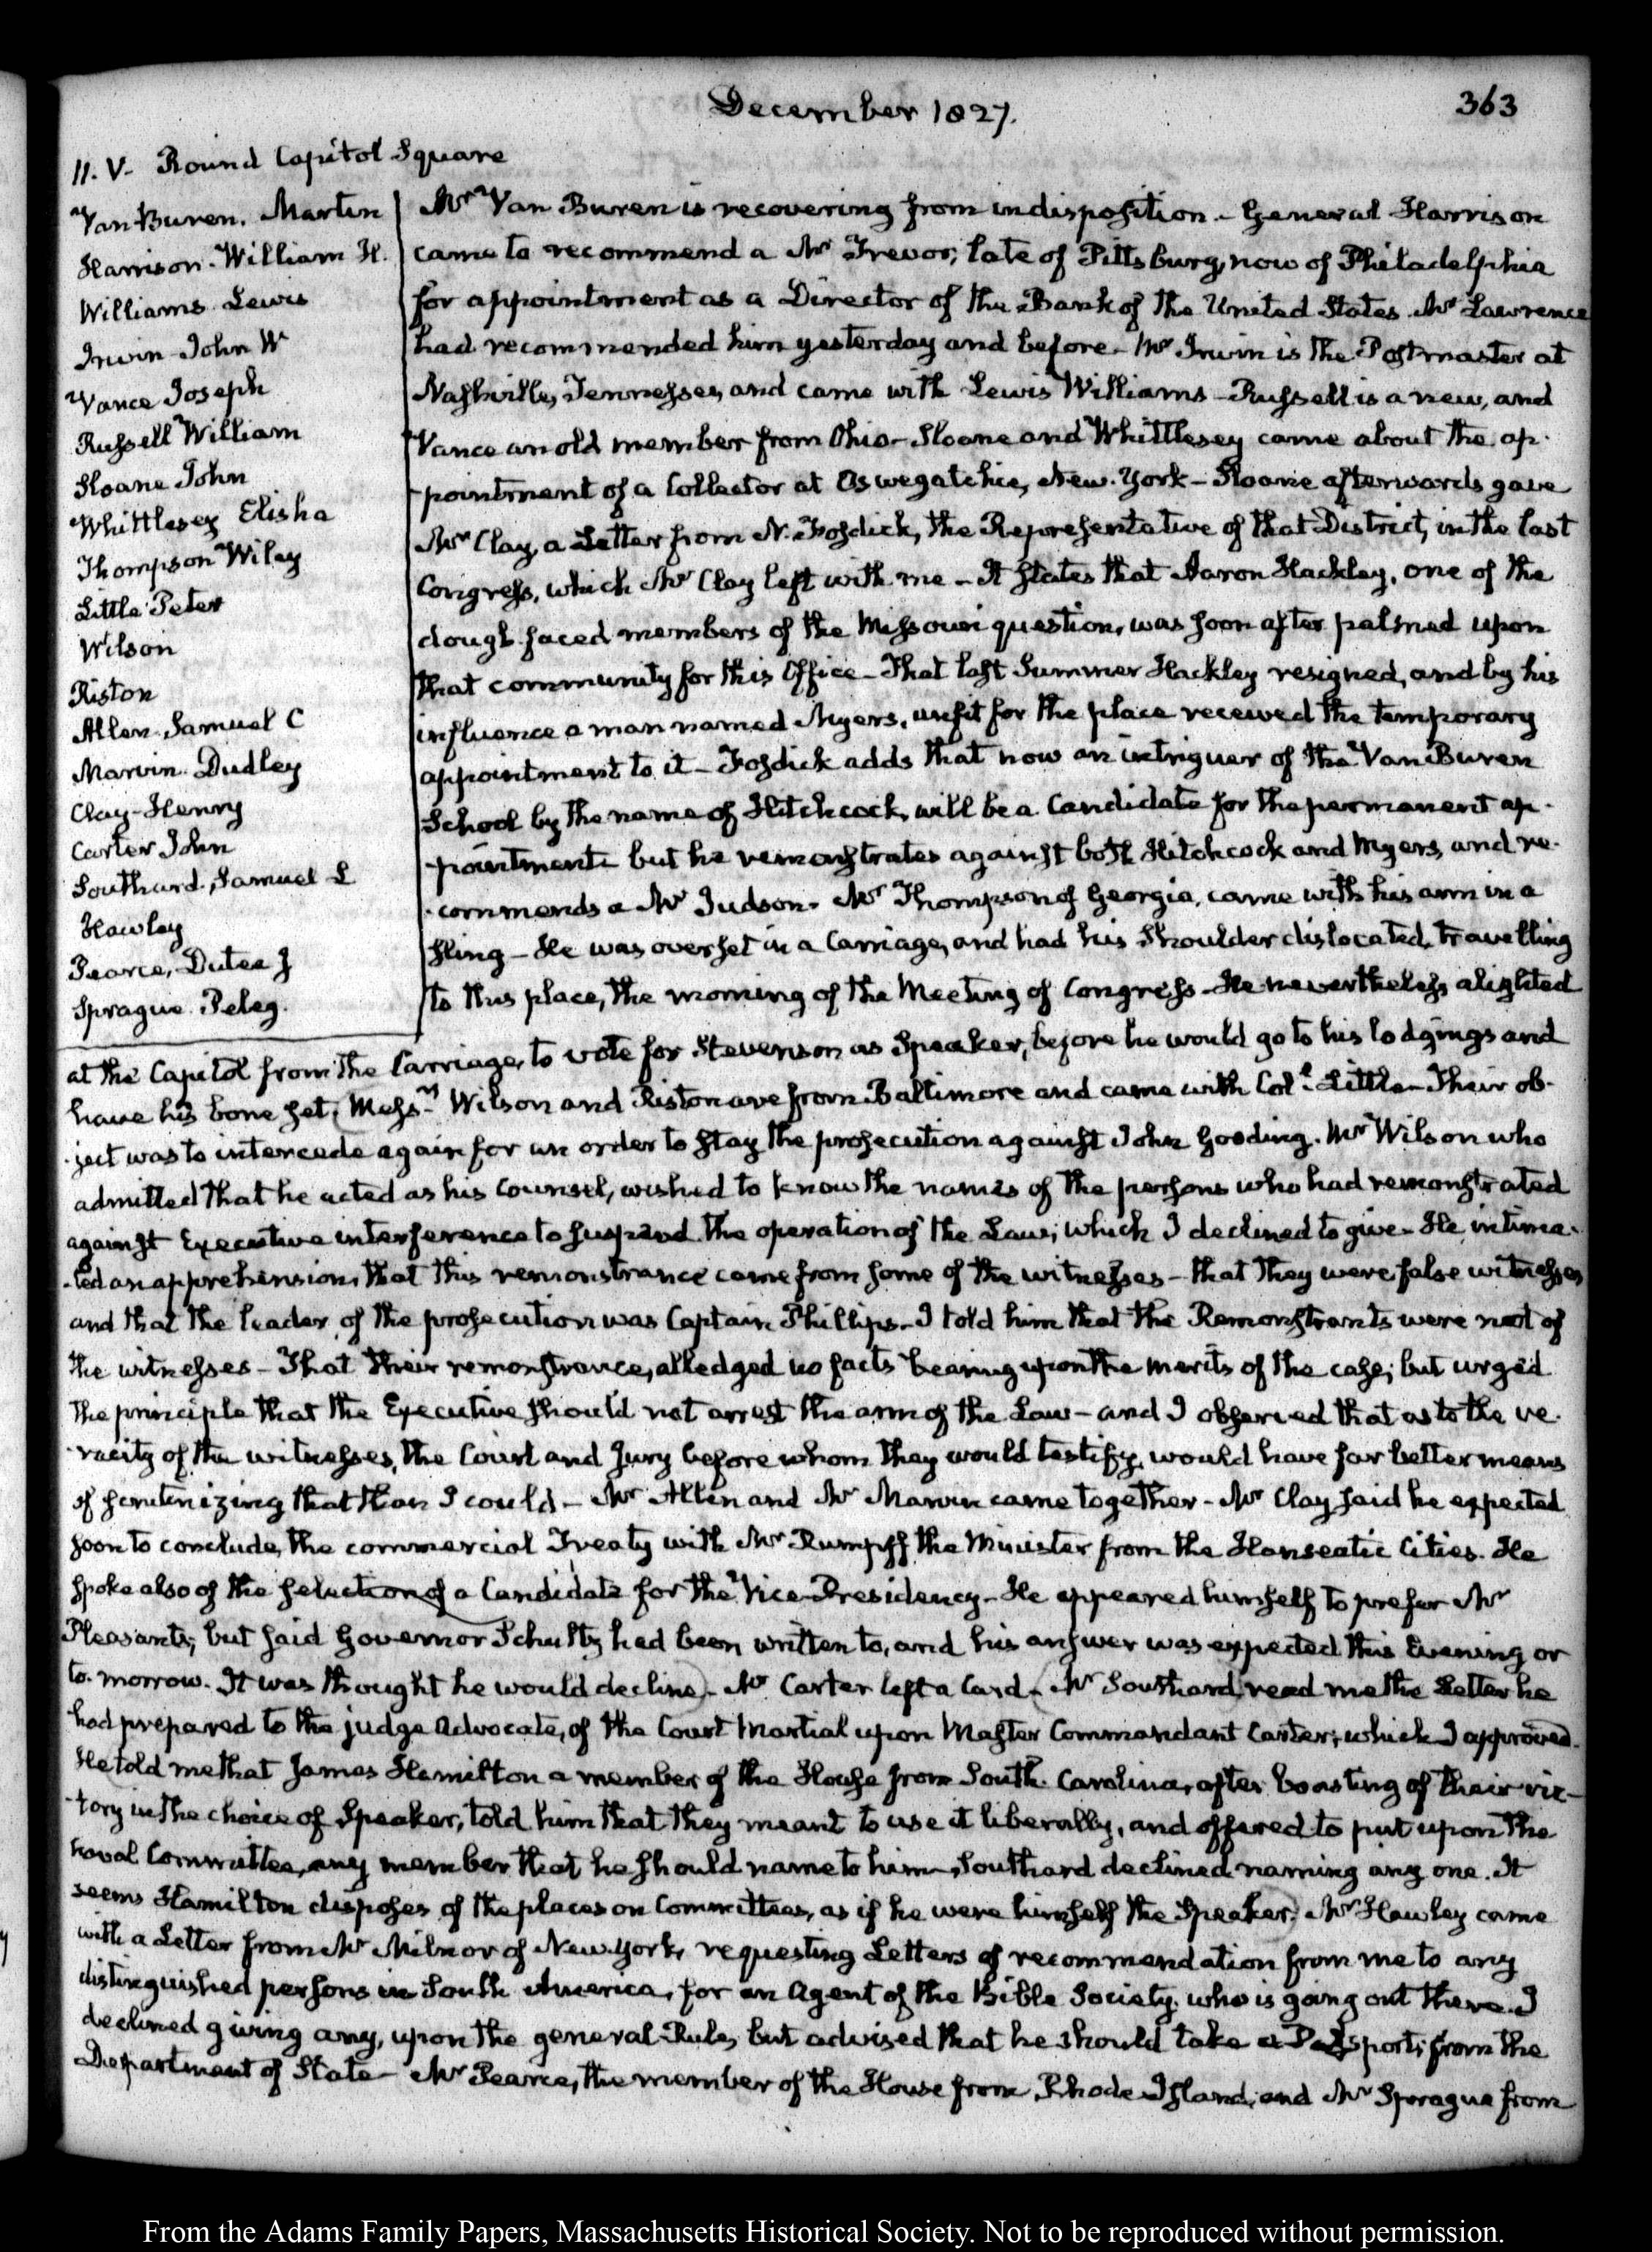 December 1827.
363
11. V. Round Capitol Square
Van Buren. Martin
Harrison. William H.
Williams Lewis
Irwin John W
Vance Joseph
Russell William
Sloane John
Whittlesey Elisha
Thompson Wiley
Little Peter
Wilson
Riston
Allen. Samuel C
Marvin. Dudley
Clay-Henry
Carter John
Southard. Samuel L
Hawley
Pearce, Dutee J
Sprague Peleg.
Mr Van Buren is recovering from indisposition - General Harrison
came to recommend a Mr Trevor, late of Pittsburg, now of Philadelphia
for appointment as a Director of the Bank of the United States. Mr Lawrence
had recommended him yesterday and before - Mr Irwin is the Postmaster at
Nashville, Tennessee, and came with Lewis Williams - Russell is a new, and
Vance an old member from Ohio - Sloane and Whittlesey came about the ap-
-pointment of a Collector at Oswegatchie, New-York - Sloane afterwards gave
Mr Clay, a Letter from N. Fosdick, the Representative of that District, in the last
Congress, which Mr Clay left with me - It states that Aaron Hackley, one of the
dough-faced members of the Missouri question, was soon after palmed upon
that community for this Office - That last Summer Hackley resigned, and by his
influence a man named Myers, unfit for the place received the temporary
appointment to it - Fosdick adds that now an intriguer of the Van Buren
School by the name of Hitchcock, will be a Candidate for the permanent ap-
-pointment but he remonstrates against both Hitchcock and Myers, and re-
-commends a Mr Judson. Mr Thompson of Georgia, came with his arm in a
sling - He was overset in a Carriage, and had his Shoulder dislocated, travelling
to this place, the morning of the Meeting of Congress - He nevertheless alighted
at the Capitol from the Carriage, to vote for Stevenson as Speaker, before he would go to his lodgings and
have his bone set. Messrs Wilson and Riston are from Baltimore and came with Coll Little - Their ob-
-ject was to intercede again for an order to stay the prosecution against John Gooding. Mr Wilson who
admitted that he acted as his Counsel, wished to know the names of the persons who had remonstrated
against Executive interference to suspend the operation of the Law; which I declined to give - He intima-
-ted an apprehension, that this remonstrance came from some of the witnesses - that they were false witnesses
and that the leader of the prosecution was Captain Phillips - I told him that the Remonstrants were not of
the witnesses - That their remonstrance, alledged no facts bearing upon the merits of the case; but urged
the principle that the Executive should not arrest the arm of the Law - and I observed that as to the ve-
-racity of the witnesses, the Court and Jury before whom they would testify, would have far better means
of scrutenizing that than I could - Mr Allen and Mr Marvin came together - Mr Clay said he expected
soon to conclude, the commercial Treaty with Mr Rumpff the Minister from the Hanseatic Cities. He
spoke also of the selection of a Candidate for the Vice-Presidency - He appeared himself to prefer Mr
Pleasants; but said Governor Schultz had been written to, and his answer was expected this Evening or
to-morrow. It was thought he would decline - Mr Carter left a Card - Mr Southard, read me the Letter he
had prepared to the judge Advocate, of the Court Martial upon Master Commandant Carter; which I approved.
He told me that James Hamilton a member of the House from South Carolina, after boasting of their vic-
-tory in the choice of Speaker, told him that they meant to use it liberally, and offered to put upon the
naval Committee, any member that he should name to him - Southard declined naming any one. It
seems Hamilton disposes of the places on Committees, as if he were himself the Speaker. Mr Hawley came
with a Letter from Mr Milnor of New-York, requesting Letters of recommendation from me to any
distinguished persons in South America, for an Agent of the Bible Society, who is going out there. I
declined giving any, upon the general Rule, but advised that he should take a Passport; from the
Department of State - Mr Pearce, the member of the House from Rhode Island, and Mr Sprague from
From the Adams Family Papers, Massachusetts Historical Society. Not to be reproduced without permission.